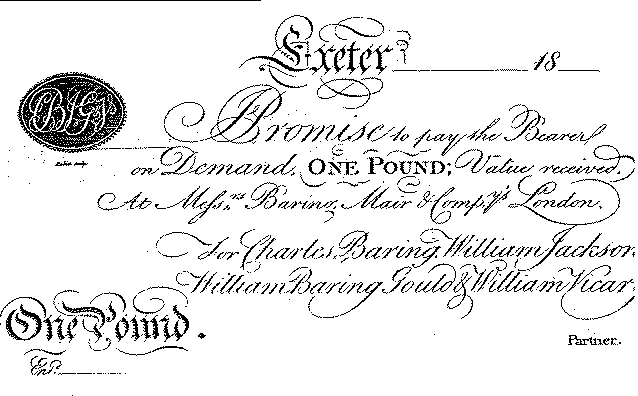 Exeter 18
Promise to pay the Bearer
on Demand, ONE POUND; Value received.
At Mess.rs Baring, Mair & Comp.y's London.
For Charles Baring, William Jackson,
William Baring Gould & William Vicary
One Pound.
Ent.d
Partner.